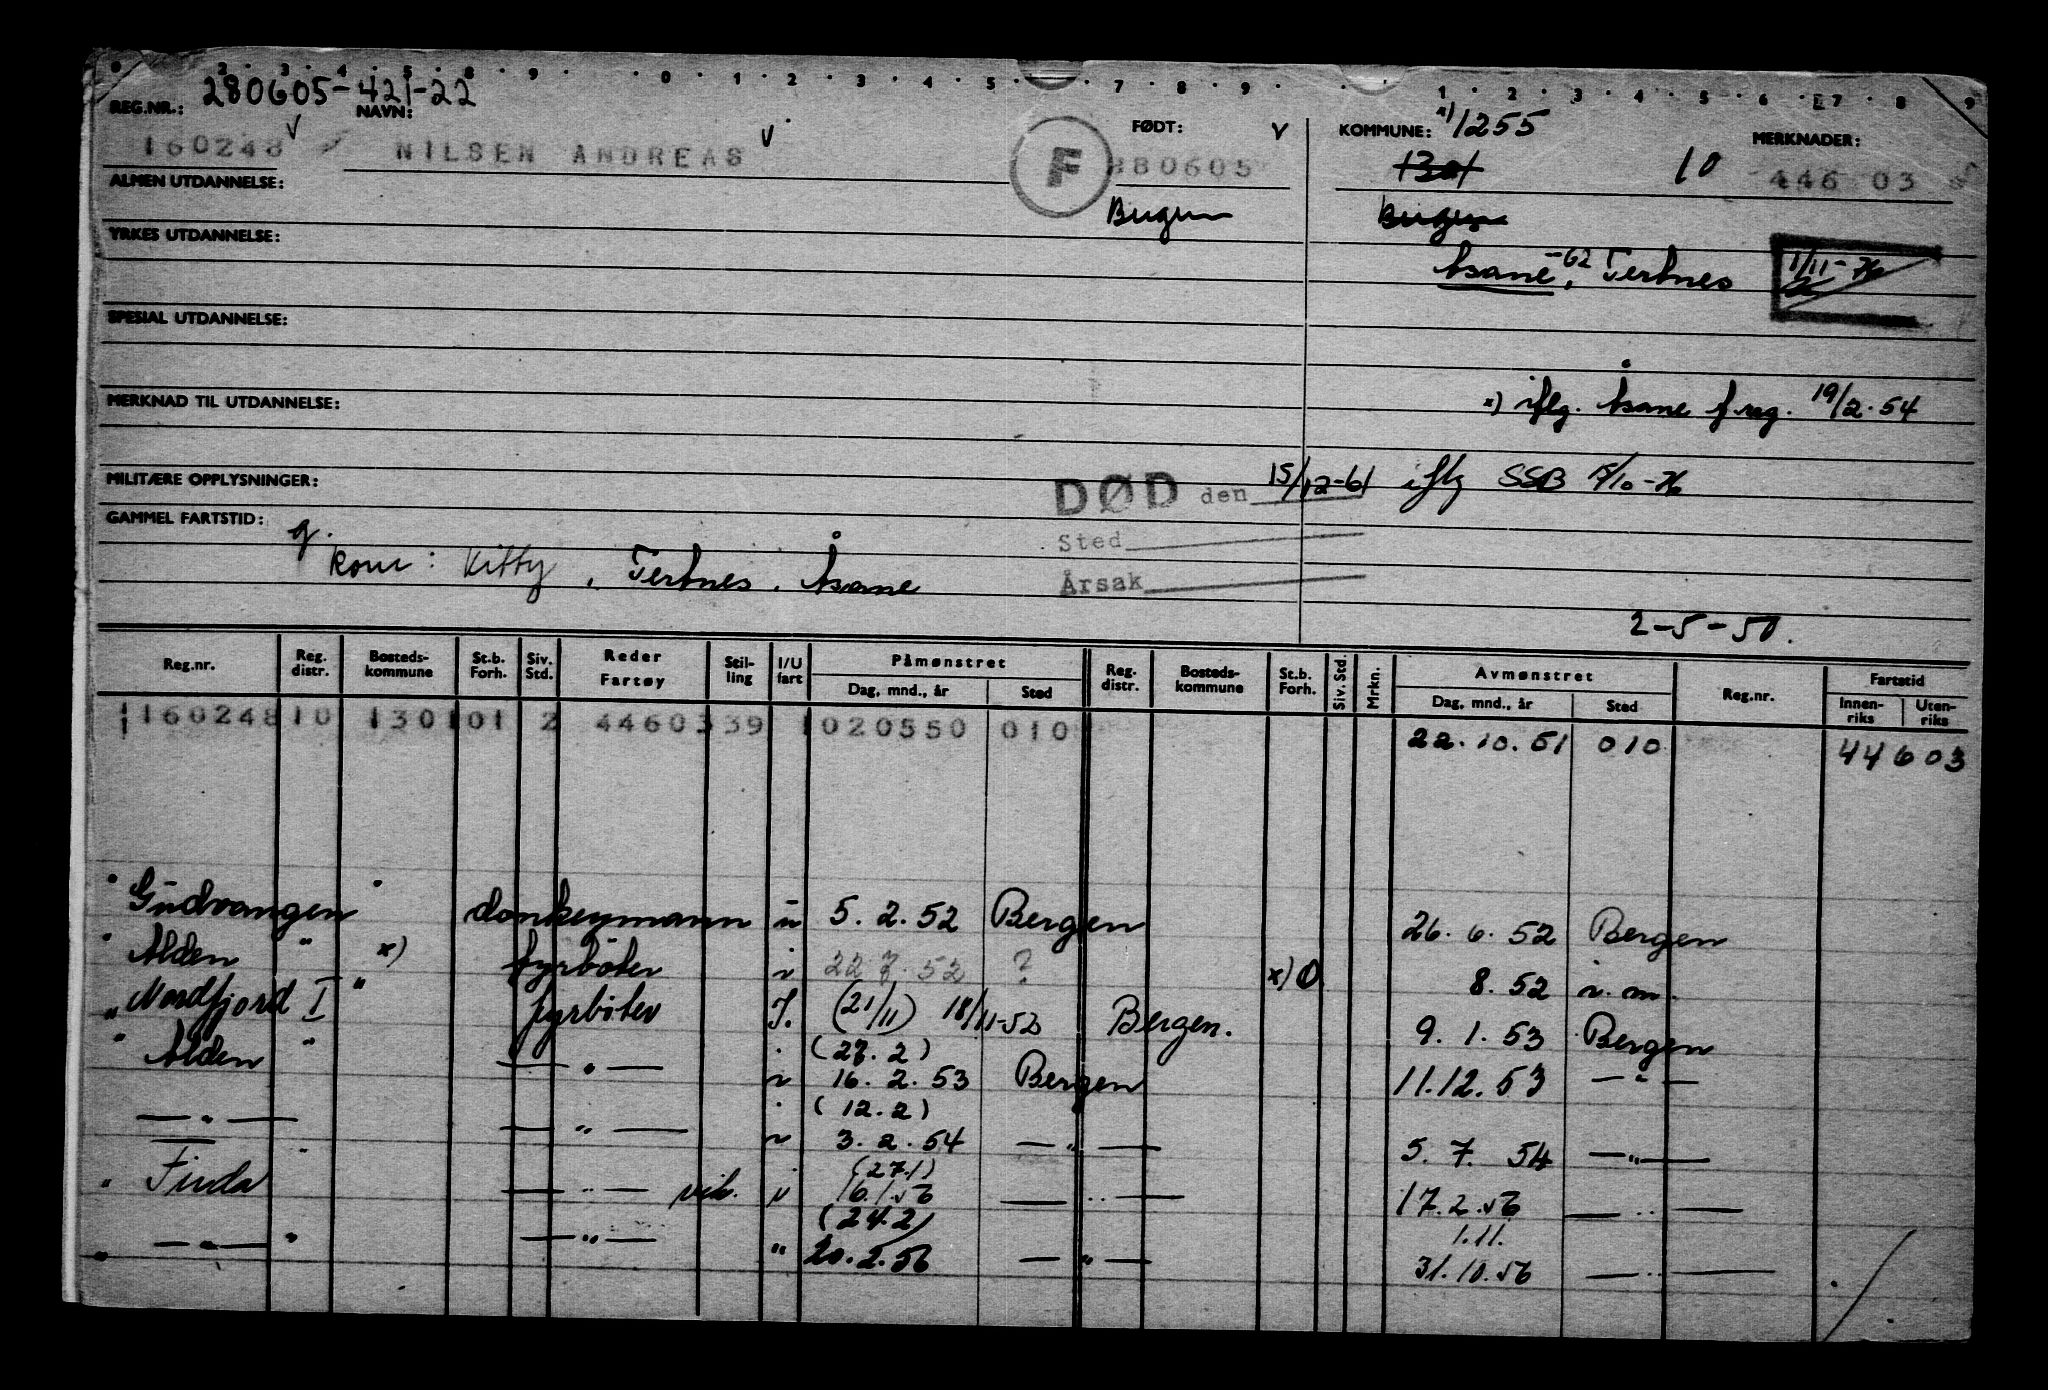 0 2 3 4 5 8 9 0 1 2 3 4 5 7 8 9 1 2 3 4 5 6 7 8 9
REG.NR.: 280605-421-22 NAVN: FØDT: KOMMUNE: x) 1255 MERKNADER:
160248 NILSEN ANDREAS F 280605 1301 10 446 03
ALMEN UTDANNELSE: Bergen Bergen
YRKES UTDANNELSE: Åsane -62, Tertnes 1/11-76
SPESIAL UTDANNELSE:
MERKNAD TIL UTDANNELSE: x) iflg. Åsane f.reg. 19/2.54
MILITÆRE OPPLYSNINGER: DØD den 15/12-61 iflg SSB
GAMMEL FARTSTID: g. Sted
kone: Kitty, Tertnes, Åsane Årsak
2-5-50.
Reg.nr. Reg. distr. Bosteds-kommune St.b. Forh. Siv. Std. Reder Fartøy Stil-ling I/U fart Påmønstret Dag, mnd., år Sted Reg. distr. Bosteds-kommune St.b. Forh. Siv. Std. Mrkn. Avmønstret Dag, mnd., år Sted Reg.nr. Fartstid Innen-riks Uten-riks
1160248 10 1301 01 2 44603 39 1 020550 010 22.10.51 010 44603
Gudvangen donkeymann u 5.2.52 Bergen 26.6.52 Bergen
Alden " x) fyrbøter i 22.7.52 ? x) 0 8.52 i.m.
Nordfjord I " fyrbøter I. (21/11) 18/11-52 Bergen. 9.1.53 Bergen
Alden " — " — i (27.2) 16.2.53 Bergen 11.12.53 — " —
— " — — " — i (12.2) 3.2.54 — " — 5.7.54 — " —
" Finda — " — vik. i (27.1) 16.1.56 — " — 17.2.56 — " —
" — " — " — " — " (24.2) 20.2.56 — " — 1.11. 31.10.56 — " —